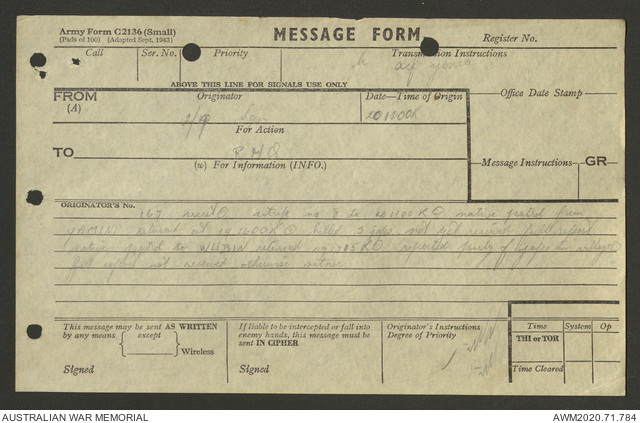 Army Form C2136 (Small)
(Pads of 100) (Adapted Sept. 1943)
MESSAGE FORM
Register No.
Call
Ser. No.
Priority
Transmission Instructions
ABOVE THIS LINE FOR SIGNALS USE ONLY
FROM
(A)
Originator
2/9
Date—Time of Origin
201100K
Office Date Stamp
For Action
TO
RHQ
(w) For Information (INFO.)
Message Instructions
GR
ORIGINATOR'S No.
167 sitrep no 8 to 201100K native patrol from
YAMINI returned at 191600K killed 3 japs not yet received full report
native patrol to WLBIN returned reported party of japs in village
full report not received otherwise
This message may be sent AS WRITTEN
by any means
except
Wireless
Signed
If liable to be intercepted or fall into
enemy hands, this message must be
sent IN CIPHER
Signed
Originator's Instructions
Degree of Priority
Time
System
Op
THI or TOR
Time Cleared
AUSTRALIAN WAR MEMORIAL
AWM2020.71.784